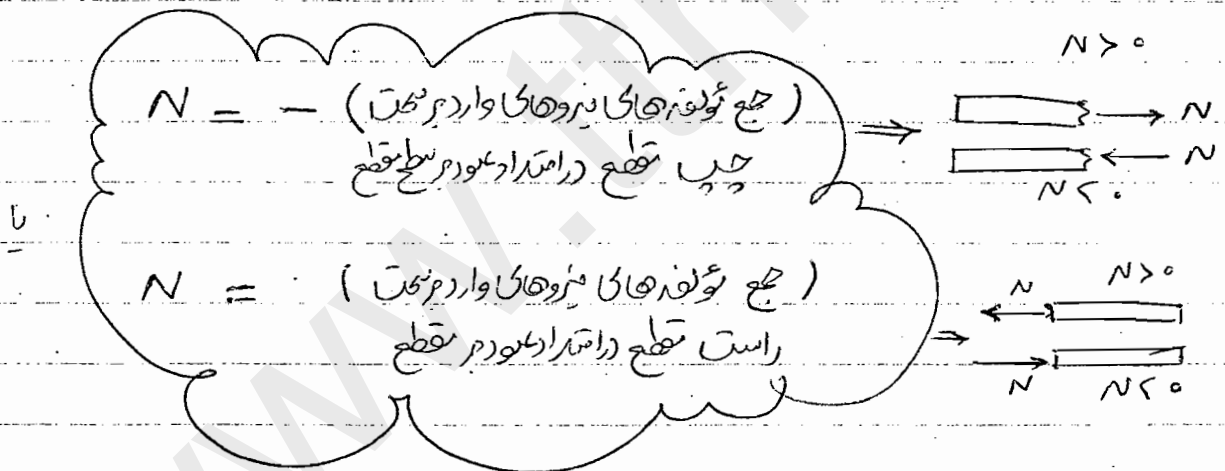 N > ۰
N = - (جمع مؤلفه‌های نیروهای وارد بر سمت
چپ مقطع در امتداد عمود بر سطح مقطع
⇒ → N
← N
N < ۰
یا
N = (جمع مؤلفه‌های نیروهای وارد بر سمت
راست مقطع در امتداد عمود بر مقطع
⇒ N N > ۰
N N < ۰